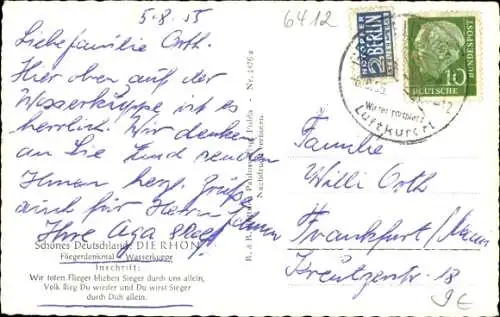 5.8.55
6412
Liebe Familie Orth.
Hier oben auf der
Wasserkuppe ist es
herrlich. Wir denken
an Sie und senden
Ihnen herzl. Grüße
auch für Herrn
Ihre Aga
Schönes Deutschland: DIE RHÖN
Fliegerdenkmal Wasserkuppe
Inschrift:
Wir toten Flieger blieben Sieger durch uns allein,
Volk flieg Du wieder und Du wirst Sieger
durch Dich allein.
Nachdruck verboten.
NOTOPFER
2 BERLIN
STEUERMARKE
DEUTSCHE BUNDESPOST
10
Luftkurort
Familie
Willi Orth
Frankfurt/Main
Kreutzerstr. 18
9€